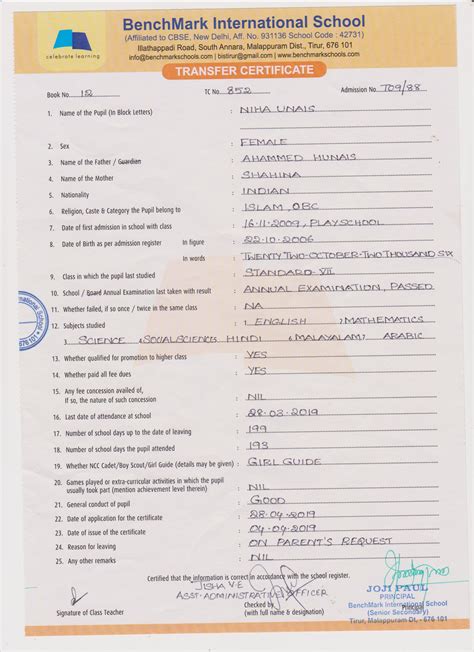 BenchMark International School
(Affiliated to CBSE, New Delhi, Aff. No. 931136 School Code : 42731)
Illathappadi Road, South Annara, Malappuram Dist., Tirur, 676 101
info@benchmarkschools.com | bistirur@gmail.com | www.benchmarkschools.com
celebrate learning
TRANSFER CERTIFICATE
Book No. 12 TC No. 852 Admission No. T09/88
1. Name of the Pupil (In Block Letters) : NIHA UNAIS
2. Sex : FEMALE
3. Name of the Father / Guardian : AHAMMED HUNAIS
4. Name of the Mother : SHAHINA
5. Nationality : INDIAN
6. Religion, Caste & Category the Pupil belong to : ISLAM, OBC
7. Date of first admission in school with class : 16-11-2009, PLAYSCHOOL
8. Date of Birth as per admission register In figure : 22-10-2006
In words : TWENTY TWO-OCTOBER-TWO THOUSAND SIX
9. Class in which the pupil last studied : STANDARD-VII
10. School / Board Annual Examination last taken with result : ANNUAL EXAMINATION, PASSED
11. Whether failed, if so once / twice in the same class : NA
12. Subjects studied : 1 ENGLISH 2 MATHEMATICS
3 SCIENCE 4 SOCIAL SCIENCE 5 HINDI 6 MALAYALAM 7 ARABIC
13. Whether qualified for promotion to higher class : YES
14. Whether paid all fee dues : YES
15. Any fee concession availed of,
If so, the nature of such concession : NIL
16. Last date of attendance at school : 28-03-2019
17. Number of school days up to the date of leaving : 199
18. Number of school days the pupil attended : 193
19. Whether NCC Cadet/Boy Scout/Girl Guide (details may be given) : GIRL GUIDE
20. Games played or extra-curricular activities in which the pupil
usually took part (mention achievement level therein) : NIL
21. General conduct of pupil : GOOD
22. Date of application for the certificate : 28-04-2019
23. Date of issue of the certificate : 04-04-2019
24. Reason for leaving : ON PARENT'S REQUEST
25. Any other remarks : NIL
Certified that the information is correct in accordance with the school register.
JISHA V.E
ASST. ADMINISTRATIVE OFFICER
Signature of Class Teacher
Checked by
(with full name & designation)
JOJI PAUL
PRINCIPAL
BenchMark International School
(Senior Secondary)
Tirur, Malappuram Dt, - 676 101